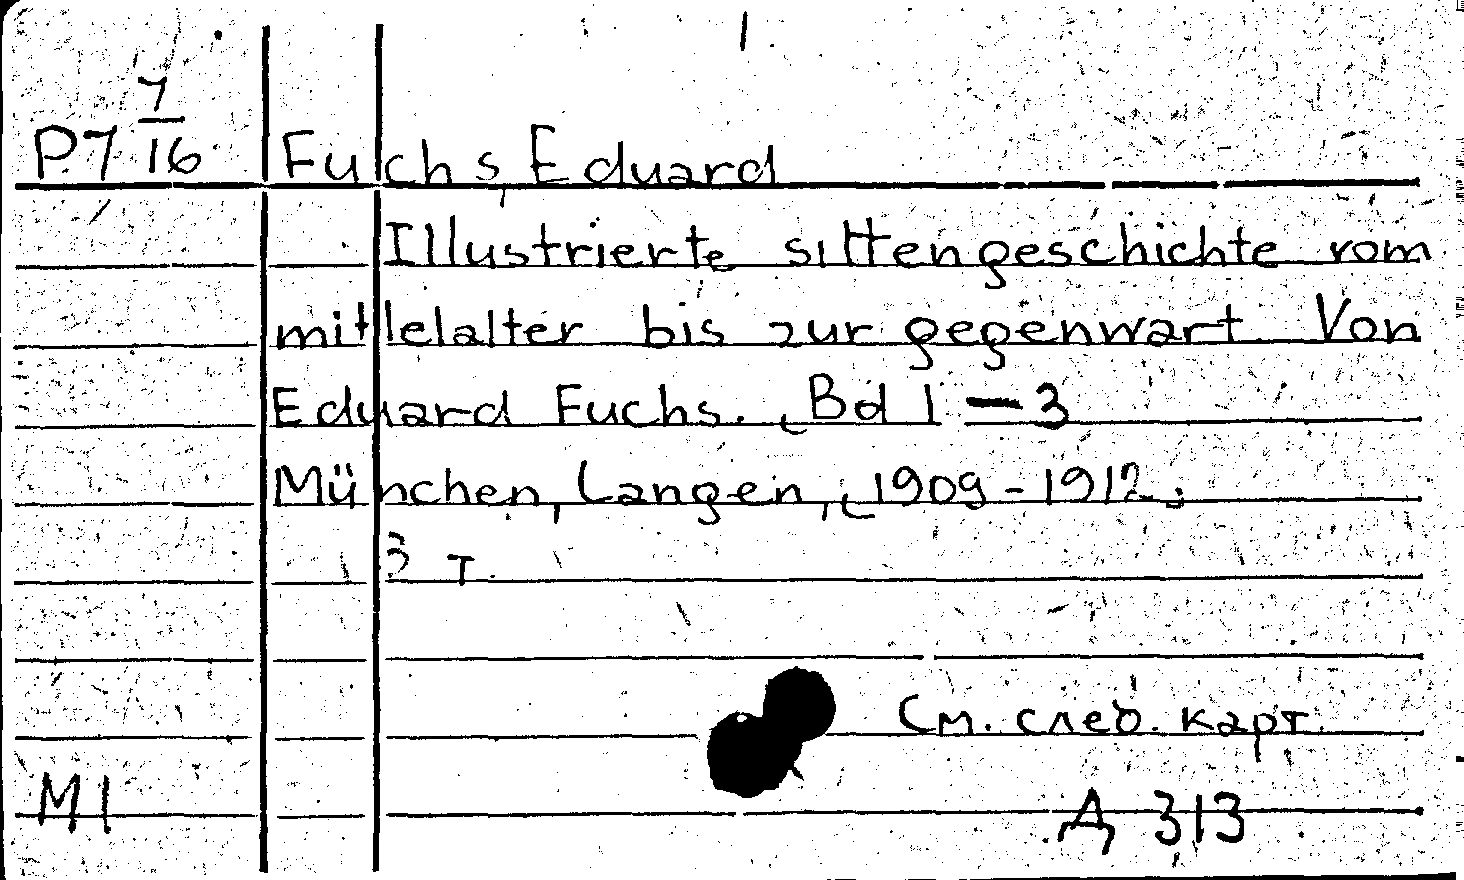 P7 7/16 Fuchs, Eduard
Illustrierte sittengeschichte vom
mittelalter bis zur gegenwart. Von
Eduard Fuchs. Bd 1 — 3
München, Langen, 1909 - 1912.
3 т.
См. след. карт.
М1 Д 313